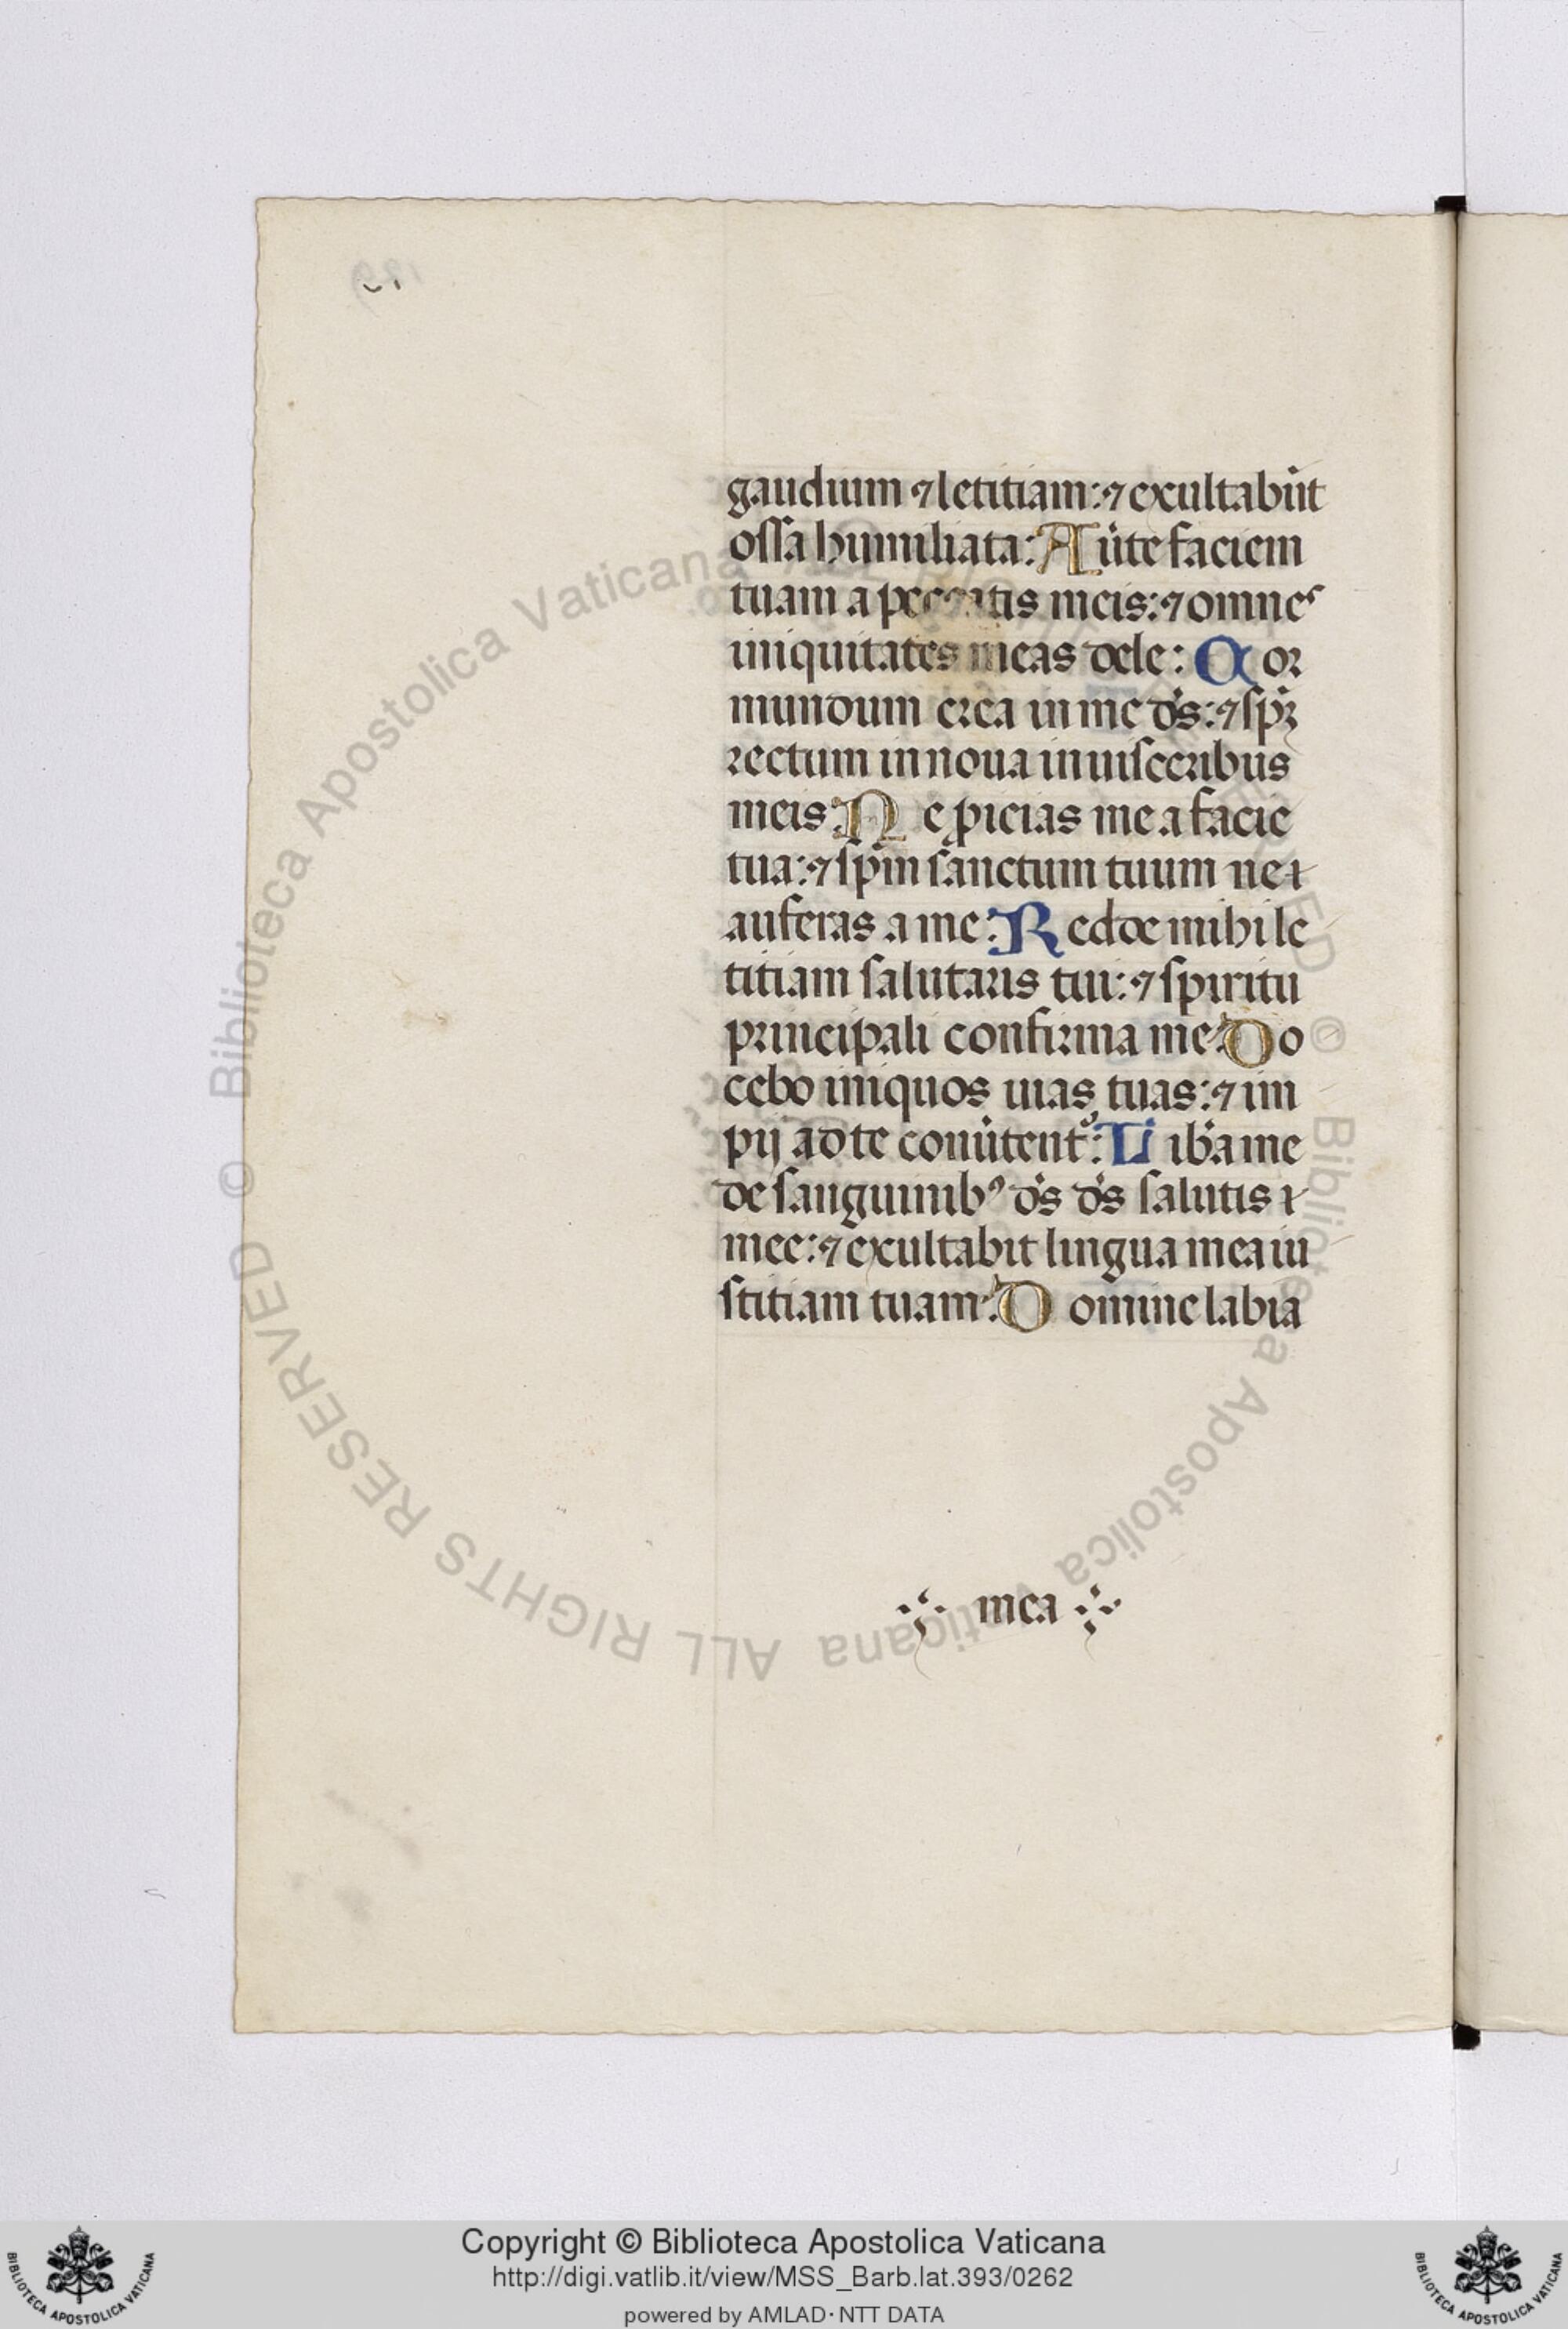 gaudium ⁊ letitiam: ⁊ exultabũt
ossa humiliata: Aũte faciem
tuam a peccatis meis: ⁊ omnes
iniquitates meas dele: Cor
mundum crea in me ds̃: ⁊ spm̃
rectum in noua in uisceribus
meis: Ne ꝓicias me a facie
tua: ⁊ spm̃ sanctum tuum ne
auferas a me: Redde mihi le
titiam salutaris tui: ⁊ spiritu
principali confirma me: Do
cebo iniquos uias tuas: ⁊ im
pij ad te conũtent᷑: Lib̃a me
de sanguinibꝰ ds̃ ds̃ salutis
mee: ⁊ exultabit lingua mea iu
stitiam tuam: Domine labia
mea
© Biblioteca Apostolica Vaticana ALL RIGHTS RESERVED © Biblioteca Apostolica Vaticana ALL RIGHTS RESERVED
Copyright © Biblioteca Apostolica Vaticana
http://digi.vatlib.it/view/MSS_Barb.lat.393/0262
powered by AMLAD·NTT DATA
BIBLIOTECA APOSTOLICA VATICANA
BIBLIOTECA APOSTOLICA VATICANA